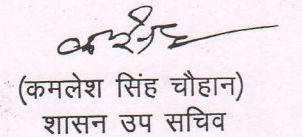 (कमलेश सिंह चौहान)
शासन उप सचिव